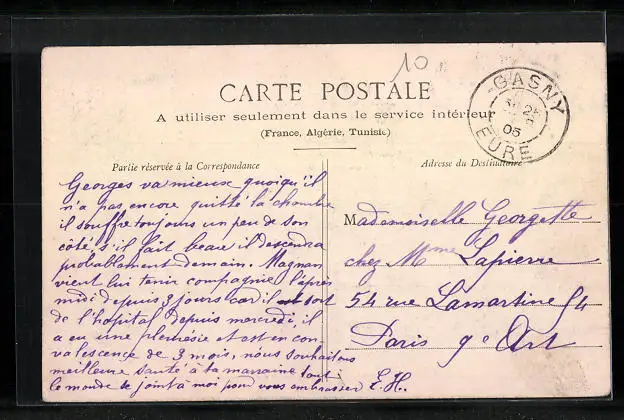 10
CARTE POSTALE
A utiliser seulement dans le service intérieur
(France, Algérie, Tunisie)
GASNY
25
05
EURE
Partie réservée à la Correspondance
Georges va mieux quoiqu'il
n'a pas encore quitté la chambre
il souffre toujours un peu de son
côté s'il fait beau il descendra
probablement demain. Magnan
vient lui tenir compagnie l'après
midi depuis 3 jours car il est sort
de l'hopital depuis mercredi, il
a eu une pleurésie et est en con-
valescence de 3 mois, nous souhaitons
meilleure santé à ta marraine tout
le monde se joint à moi pour vous embrasser E.H.
Adresse du Destinataire
Mademoiselle Georgette
chez Mme Lapierre
54 rue Lamartine 54
Paris 9e Art